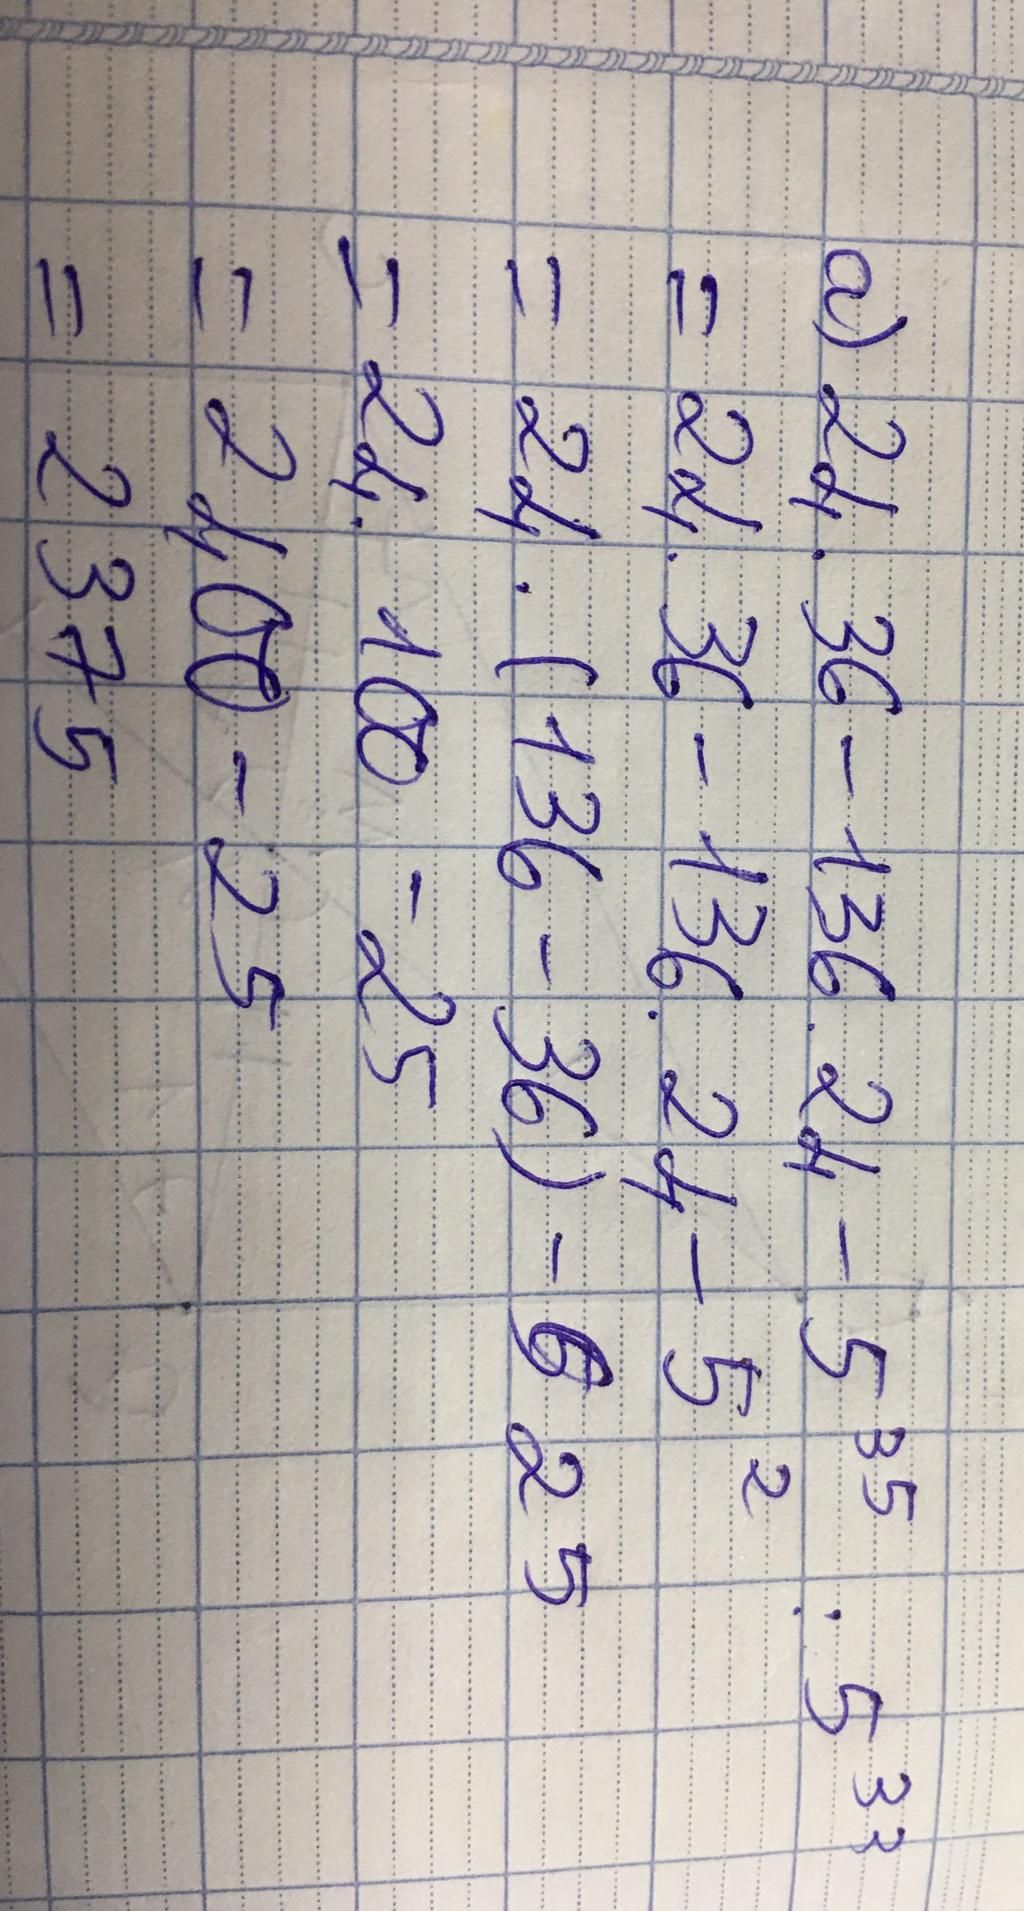 a) 24 . 36 - 136 . 24 - 5³⁵ : 5³³
= 24 . 36 - 136 . 24 - 5²
= 24 . (136 - 36) - 625
= 24 . 100 - 25
= 2400 - 25
= 2375